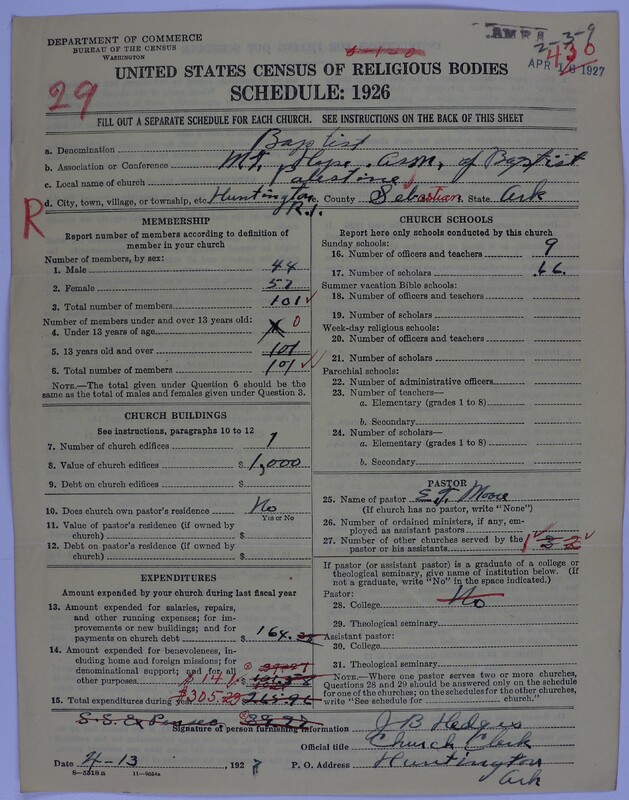 DEPARTMENT OF COMMERCE
BUREAU OF THE CENSUS
WASHINGTON
2-3-9
430
APR 16 1927
29
UNITED STATES CENSUS OF RELIGIOUS BODIES
SCHEDULE: 1926
FILL OUT A SEPARATE SCHEDULE FOR EACH CHURCH. SEE INSTRUCTIONS ON THE BACK OF THIS SHEET
a. Denomination Baptist
b. Association or Conference Mt. Hope Assn. of Baptist
c. Local name of church Palestine
d. City, town, village, or township, etc. Huntington e. County Sebastian State Ark
R.1.
R
MEMBERSHIP
Report number of members according to definition of member in your church
Number of members, by sex:
1. Male 44
2. Female 57
3. Total number of members 101
Number of members under and over 13 years old:
4. Under 13 years of age 0
5. 13 years old and over 101
6. Total number of members 101
NOTE.—The total given under Question 6 should be the same as the total of males and females given under Question 3.
CHURCH BUILDINGS
See instructions, paragraphs 10 to 12
7. Number of church edifices 1
8. Value of church edifices $ 1,000
9. Debt on church edifices $
10. Does church own pastor's residence No
Yes or No
11. Value of pastor's residence (if owned by church) $
12. Debt on pastor's residence (if owned by church) $
EXPENDITURES
Amount expended by your church during last fiscal year
13. Amount expended for salaries, repairs, and other running expenses; for improvements or new buildings; and for payments on church debt $ 164.
14. Amount expended for benevolences, including home and foreign missions; for denominational support; and for all other purposes $ 141
15. Total expenditures during year $305
S.S. Expenses 39.27
CHURCH SCHOOLS
Report here only schools conducted by this church
Sunday schools:
16. Number of officers and teachers 9
17. Number of scholars 66
Summer vacation Bible schools:
18. Number of officers and teachers
19. Number of scholars
Week-day religious schools:
20. Number of officers and teachers
21. Number of scholars
Parochial schools:
22. Number of administrative officers
23. Number of teachers—
a. Elementary (grades 1 to 8)
b. Secondary
24. Number of scholars—
a. Elementary (grades 1 to 8)
b. Secondary
PASTOR
25. Name of pastor E.J. Moore
(If church has no pastor, write "None")
26. Number of ordained ministers, if any, employed as assistant pastors
27. Number of other churches served by the pastor or his assistants 1
If pastor (or assistant pastor) is a graduate of a college or theological seminary, give name of institution below. (If not a graduate, write "No" in the space indicated.)
Pastor:
28. College No
29. Theological seminary
Assistant pastor:
30. College
31. Theological seminary
NOTE.—Where one pastor serves two or more churches, Questions 28 and 29 should be answered only on the schedule for one of the churches; on the schedules for the other churches, write "See schedule for church."
Signature of person furnishing information J B Hedges
Official title Church Clerk
Date 4-13 1927 P. O. Address Huntington
Ark
8-5518a 11-9034a